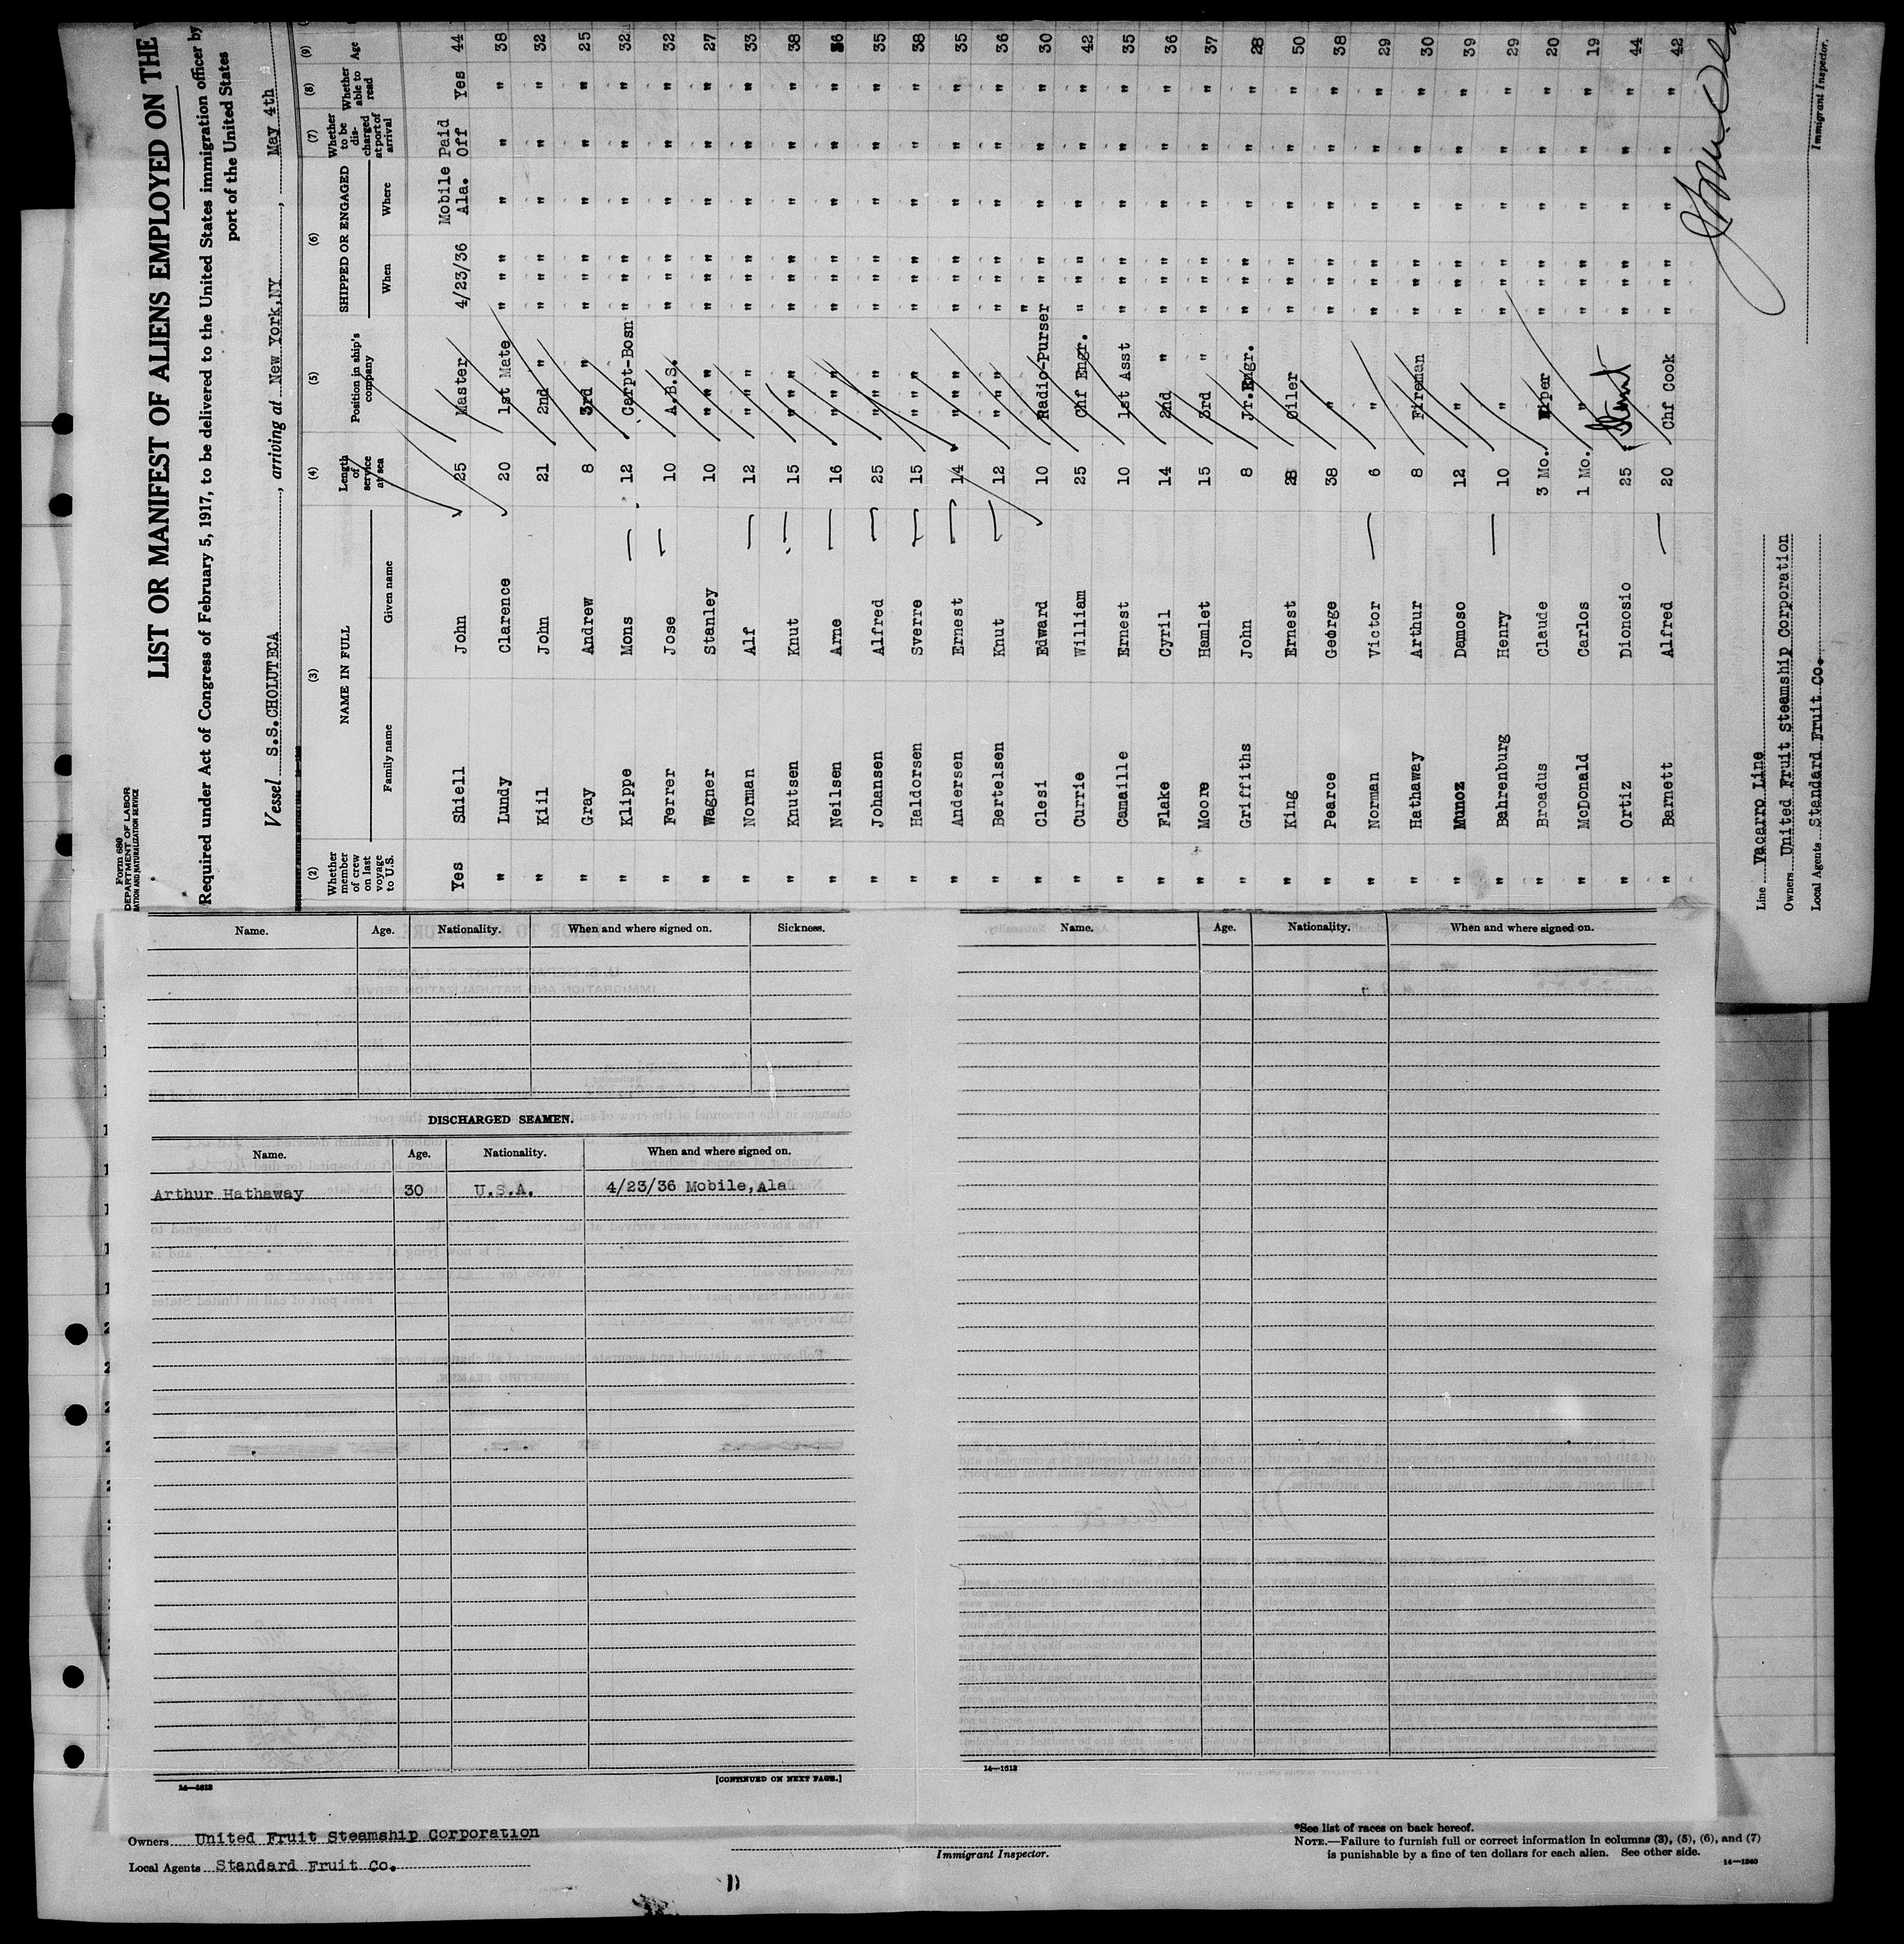 Form 680
DEPARTMENT OF LABOR
LIST OR MANIFEST OF ALIENS EMPLOYED ON THE
Required under Act of Congress of February 5, 1917, to be delivered to the United States immigration officer by
port of the United States
Vessel S.S.CHOLUTECA, arriving at New York,NY, May 4th
(2) Whether member of crew on last voyage to U.S. (3) NAME IN FULL Family name Given name (4) Length of service at sea (5) Position in ship's company (6) SHIPPED OR ENGAGED When Where (7) Whether to be discharged at port of arrival (8) Whether able to read (9) Age
Yes Shiell John 25 Master 4/23/36 Mobile Ala. Paid Off Yes 44
" Lundy Clarence 20 1st Mate " " " " " " 38
" Kiil John 21 2nd " " " " " " " 32
" Gray Andrew 8 3rd " " " " " " " 25
" Klippe Mons 12 Carpt-Bosn " " " " " " 32
" Ferrer Jose 10 A.B.S. " " " " " " 32
" Wagner Stanley 10 " " " " " " " " " 27
" Norman Alf 12 " " " " " " " " " 33
" Knutsen Knut 15 " " " " " " " " " 38
" Neilsen Arne 16 " " " " " " " " "
" Johansen Alfred 25 " " " " " " " " " 35
" Haldorsen Sverre 15 " " " " " " " " " 38
" Andersen Ernest 14 " " " " " " " " " 35
" Bertelsen Knut 12 " " " " " " " " " 36
" Clesi Edward 10 Radio-Purser " " " " " " 30
" Currie William 25 Chf Engr. " " " " " " 42
" Camaille Ernest 10 1st Asst " " " " " " 35
" Flake Cyril 14 2nd " " " " " " " 36
" Moore Hamlet 15 3rd " " " " " " " 37
" Griffiths John 8 Jr.Engr. " " " " " " 28
" King Ernest 28 Oiler " " " " " " 50
" Pearce George 38 " " " " " " " 38
" Norman Victor 6 " " " " " " " 29
" Hathaway Arthur 8 Fireman " " " " " " 30
" Munoz Damoso 12 " " " " " " " 39
" Bahrenburg Henry 10 " " " " " " " 29
" Broadus Claude 3 Mo. Wiper " " " " " " 20
" McDonald Carlos 1 Mo. " " " " " " " 19
" Ortiz Dionosio 25 " " " " " " 44
" Barnett Alfred 20 Chf Cook " " " " " " 42
Line Vacarro Line
Owners United Fruit Steamship Corporation
Local Agents Standard Fruit Co.
Immigrant Inspector.
Name. Age. Nationality. When and where signed on. Sickness.
DISCHARGED SEAMEN.
Name. Age. Nationality. When and where signed on.
Arthur Hathaway 30 U.S.A. 4/23/36 Mobile,Ala
14—1613
[CONTINUED ON NEXT PAGE.]
Name. Age. Nationality. When and where signed on.
14—1613
Owners United Fruit Steamship Corporation
Local Agents Standard Fruit Co.
Immigrant Inspector.
*See list of races on back hereof.
NOTE.—Failure to furnish full or correct information in columns (3), (5), (6), and (7)
is punishable by a fine of ten dollars for each alien. See other side.
14—1240